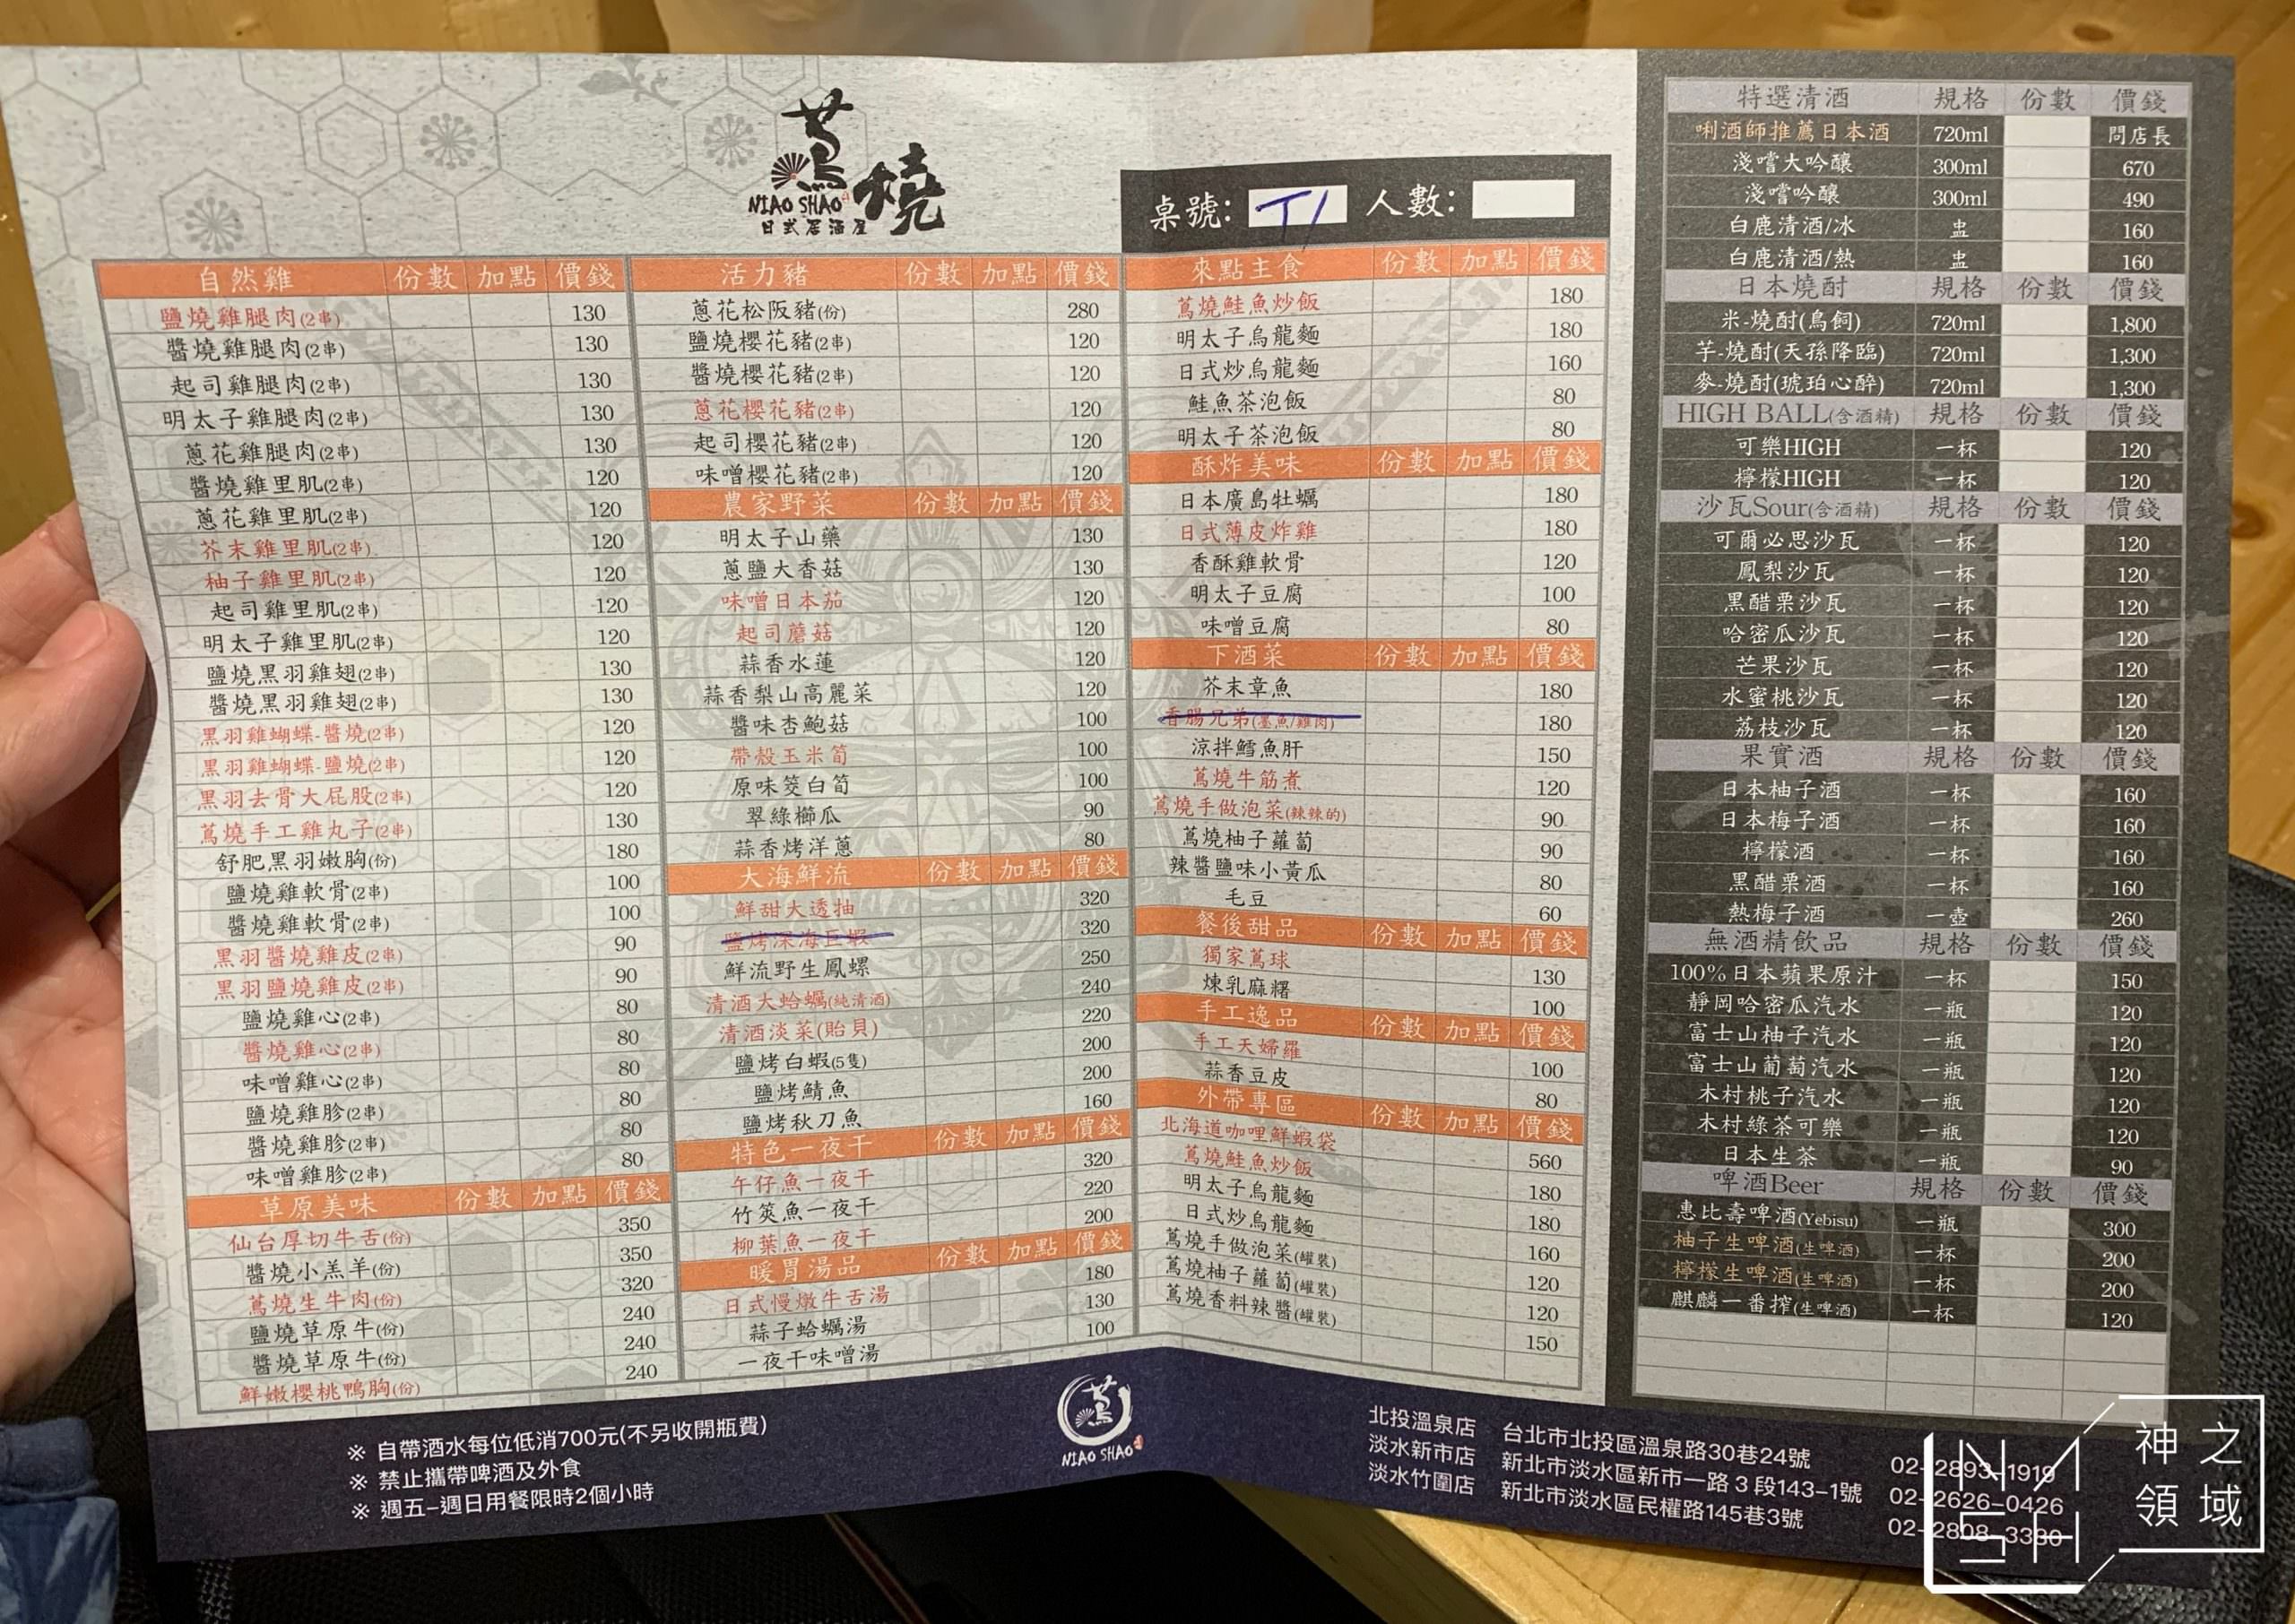 蔦燒
NIAO SHAO
日式居酒屋
桌號: T1 人數:
自然雞 份數 加點 價錢
鹽燒雞腿肉(2串) 130
醬燒雞腿肉(2串) 130
起司雞腿肉(2串) 130
明太子雞腿肉(2串) 130
蔥花雞腿肉(2串) 130
醬燒雞里肌(2串) 120
蔥花雞里肌(2串) 120
芥末雞里肌(2串) 120
柚子雞里肌(2串) 120
起司雞里肌(2串) 120
明太子雞里肌(2串) 120
鹽燒黑羽雞翅(2串) 130
醬燒黑羽雞翅(2串) 130
黑羽雞蝴蝶-醬燒(2串) 120
黑羽雞蝴蝶-鹽燒(2串) 120
黑羽去骨大屁股(2串) 120
蔦燒手工雞丸子(2串) 130
舒肥黑羽嫩胸(份) 180
鹽燒雞軟骨(2串) 100
醬燒雞軟骨(2串) 100
黑羽醬燒雞皮(2串) 90
黑羽鹽燒雞皮(2串) 90
鹽燒雞心(2串) 80
醬燒雞心(2串) 80
味噌雞心(2串) 80
鹽燒雞胗(2串) 80
醬燒雞胗(2串) 80
味噌雞胗(2串) 80
草原美味 份數 加點 價錢
仙台厚切牛舌(份) 350
醬燒小羔羊(份) 350
蔦燒生牛肉(份) 320
鹽燒草原牛(份) 240
醬燒草原牛(份) 240
鮮嫩櫻桃鴨胸(份) 240
活力豬 份數 加點 價錢
蔥花松阪豬(份) 280
鹽燒櫻花豬(2串) 120
醬燒櫻花豬(2串) 120
蔥花櫻花豬(2串) 120
起司櫻花豬(2串) 120
味噌櫻花豬(2串) 120
農家野菜 份數 加點 價錢
明太子山藥 130
蔥鹽大香菇 130
味噌日本茄 120
起司蘑菇 120
蒜香水蓮 120
蒜香梨山高麗菜 120
醬味杏鮑菇 100
帶殼玉米筍 100
原味筊白筍 100
翠綠櫛瓜 90
蒜香烤洋蔥 80
大海鮮流 份數 加點 價錢
鮮甜大透抽 320
鹽烤深海巨蝦 320
鮮流野生鳳螺 250
清酒大蛤蠣(純清酒) 240
清酒淡菜(貽貝) 220
鹽烤白蝦(5隻) 200
鹽烤鯖魚 200
鹽烤秋刀魚 160
特色一夜干 份數 加點 價錢
午仔魚一夜干 320
竹筴魚一夜干 220
柳葉魚一夜干 200
暖胃湯品 份數 加點 價錢
日式慢燉牛舌湯 180
蒜子蛤蠣湯 130
一夜干味噌湯 100
來點主食 份數 加點 價錢
蔦燒鮭魚炒飯 180
明太子烏龍麵 180
日式炒烏龍麵 160
鮭魚茶泡飯 80
明太子茶泡飯 80
酥炸美味 份數 加點 價錢
日本廣島牡蠣 180
日式薄皮炸雞 180
香酥雞軟骨 120
明太子豆腐 100
味噌豆腐 80
下酒菜 份數 加點 價錢
芥末章魚 180
香腸兄弟(墨魚/雞肉) 180
涼拌鱈魚肝 150
蔦燒牛筋煮 120
蔦燒手做泡菜(辣辣的) 90
蔦燒柚子蘿蔔 90
辣醬鹽味小黃瓜 80
毛豆 60
餐後甜品 份數 加點 價錢
獨家蔦球 130
煉乳麻糬 100
手工逸品 份數 加點 價錢
手工天婦羅 100
蒜香豆皮 80
外帶專區 份數 加點 價錢
北海道咖哩鮮蝦袋 560
蔦燒鮭魚炒飯 180
明太子烏龍麵 180
日式炒烏龍麵 160
蔦燒手做泡菜(罐裝) 120
蔦燒柚子蘿蔔(罐裝) 120
蔦燒香料辣醬(罐裝) 150
特選清酒 規格 份數 價錢
唎酒師推薦日本酒 720ml 問店長
淺嚐大吟釀 300ml 670
淺嚐吟釀 300ml 490
白鹿清酒/冰 盅 160
白鹿清酒/熱 盅 160
日本燒酎 規格 份數 價錢
米-燒酎(鳥飼) 720ml 1,800
芋-燒酎(天孫降臨) 720ml 1,300
麥-燒酎(琥珀心醉) 720ml 1,300
HIGH BALL(含酒精) 規格 份數 價錢
可樂HIGH 一杯 120
檸檬HIGH 一杯 120
沙瓦Sour(含酒精) 規格 份數 價錢
可爾必思沙瓦 一杯 120
鳳梨沙瓦 一杯 120
黑醋栗沙瓦 一杯 120
哈密瓜沙瓦 一杯 120
芒果沙瓦 一杯 120
水蜜桃沙瓦 一杯 120
荔枝沙瓦 一杯 120
果實酒 規格 份數 價錢
日本柚子酒 一杯 160
日本梅子酒 一杯 160
檸檬酒 一杯 160
黑醋栗酒 一杯 160
熱梅子酒 一壺 260
無酒精飲品 規格 份數 價錢
100%日本蘋果原汁 一杯 150
靜岡哈密瓜汽水 一瓶 120
富士山柚子汽水 一瓶 120
富士山葡萄汽水 一瓶 120
木村桃子汽水 一瓶 120
木村綠茶可樂 一瓶 120
日本生茶 一瓶 90
啤酒Beer 規格 份數 價錢
惠比壽啤酒(Yebisu) 一瓶 300
柚子生啤酒(生啤酒) 一杯 200
檸檬生啤酒(生啤酒) 一杯 200
麒麟一番搾(生啤酒) 一杯 120
※ 自帶酒水每位低消700元(不另收開瓶費)
※ 禁止攜帶啤酒及外食
※ 週五-週日用餐限時2個小時
蔦
NIAO SHAO
北投溫泉店 台北市北投區溫泉路30巷24號 02-2893-1919
淡水新市店 新北市淡水區新市一路3段143-1號 02-2626-0426
淡水竹圍店 新北市淡水區民權路145巷3號 02-2808-3390
神之
領域